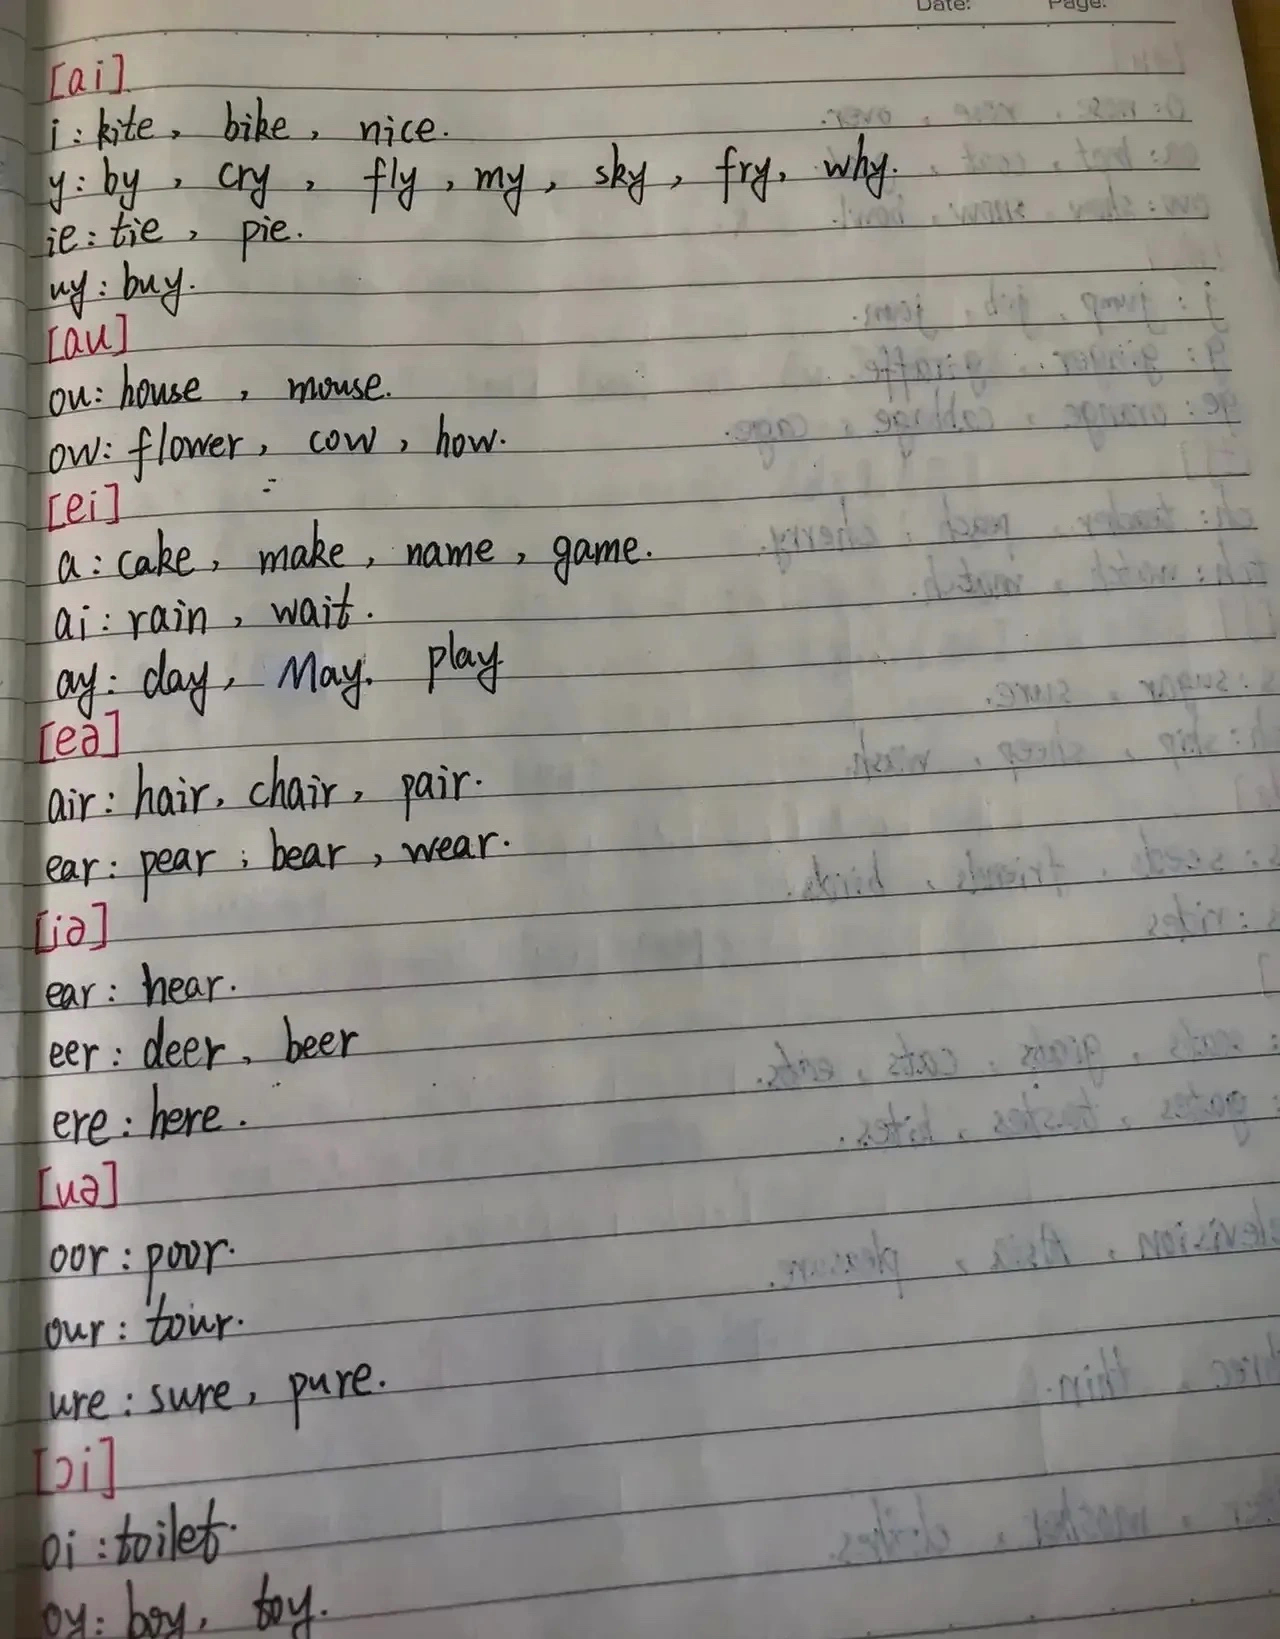 Date: Page:
[ai]
i: kite, bike, nice.
y: by, cry, fly, my, sky, fry, why.
ie: tie, pie.
uy: buy.
[au]
ou: house, mouse.
ow: flower, cow, how.
[ei]
a: cake, make, name, game.
ai: rain, wait.
ay: day, May. play
[eə]
air: hair, chair, pair.
ear: pear; bear, wear.
[iə]
ear: hear.
eer: deer, beer
ere: here.
[uə]
oor: poor.
our: tour.
ure: sure, pure.
[ɔi]
oi: toilet.
oy: boy, toy.